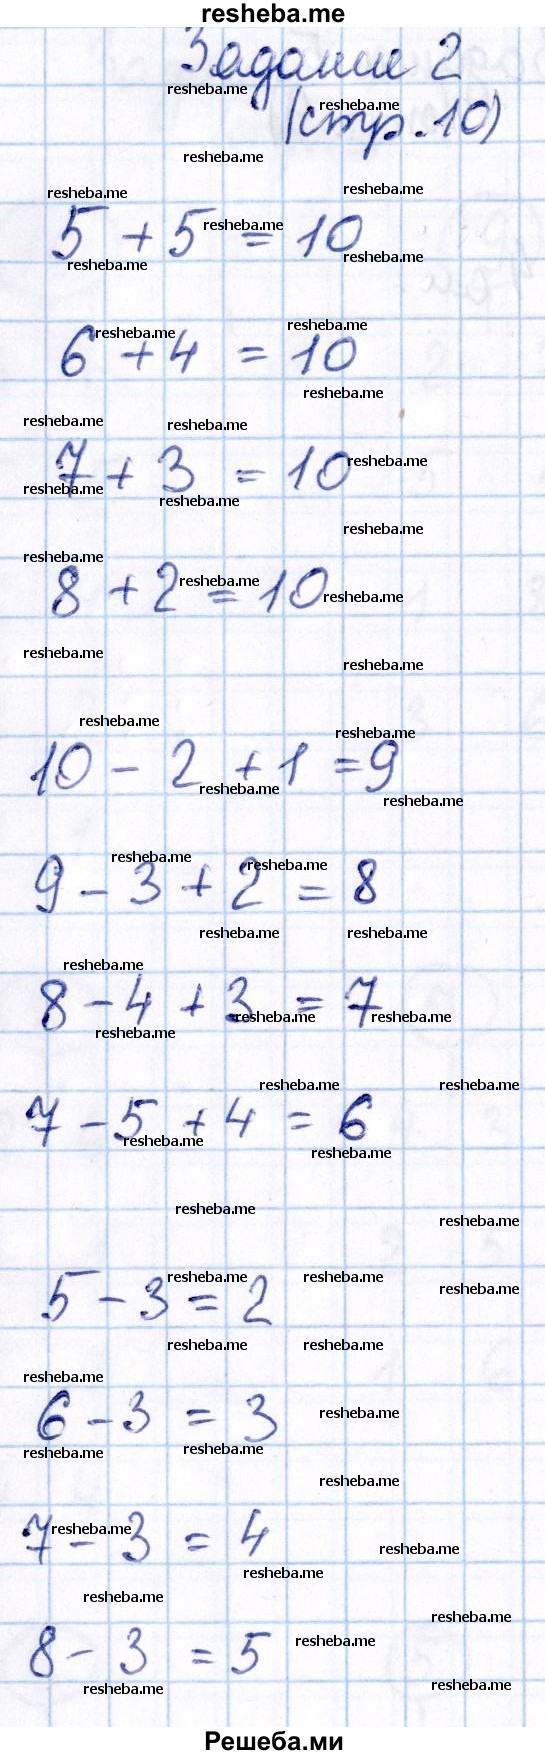 resheba.me
Задание 2
(стр. 10)
5 + 5 = 10
6 + 4 = 10
7 + 3 = 10
8 + 2 = 10
10 - 2 + 1 = 9
9 - 3 + 2 = 8
8 - 4 + 3 = 7
7 - 5 + 4 = 6
5 - 3 = 2
6 - 3 = 3
7 - 3 = 4
8 - 3 = 5
Решеба.ми